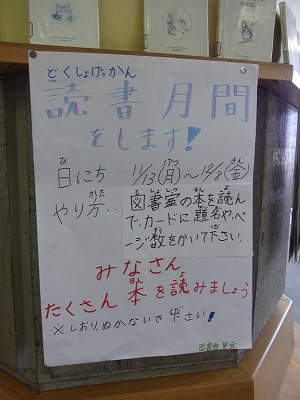 どくしょげっかん
読書月間
をします!
日にち… 11/13(月)~12/8(金)
ひ げつ きん
やり方…
かた
図書室の本を読ん
でカードに題名やペ
ージ数をかいて下さい.
みなさん
たくさん本を読みましょう
※しおりぬかないで下さい!